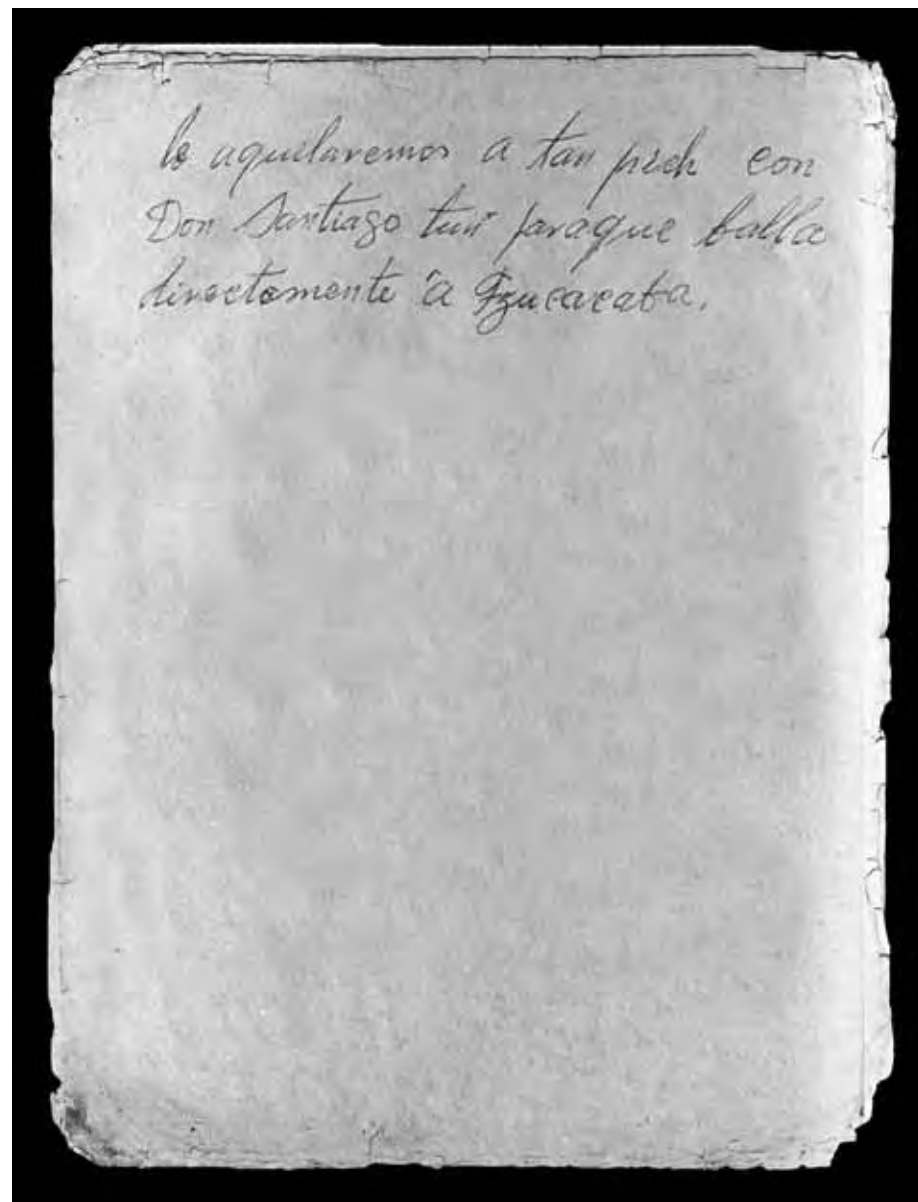 lo aquilaremos a tan pich con
Don Santiago tun paraque balla
directamente a Tzucacaba.